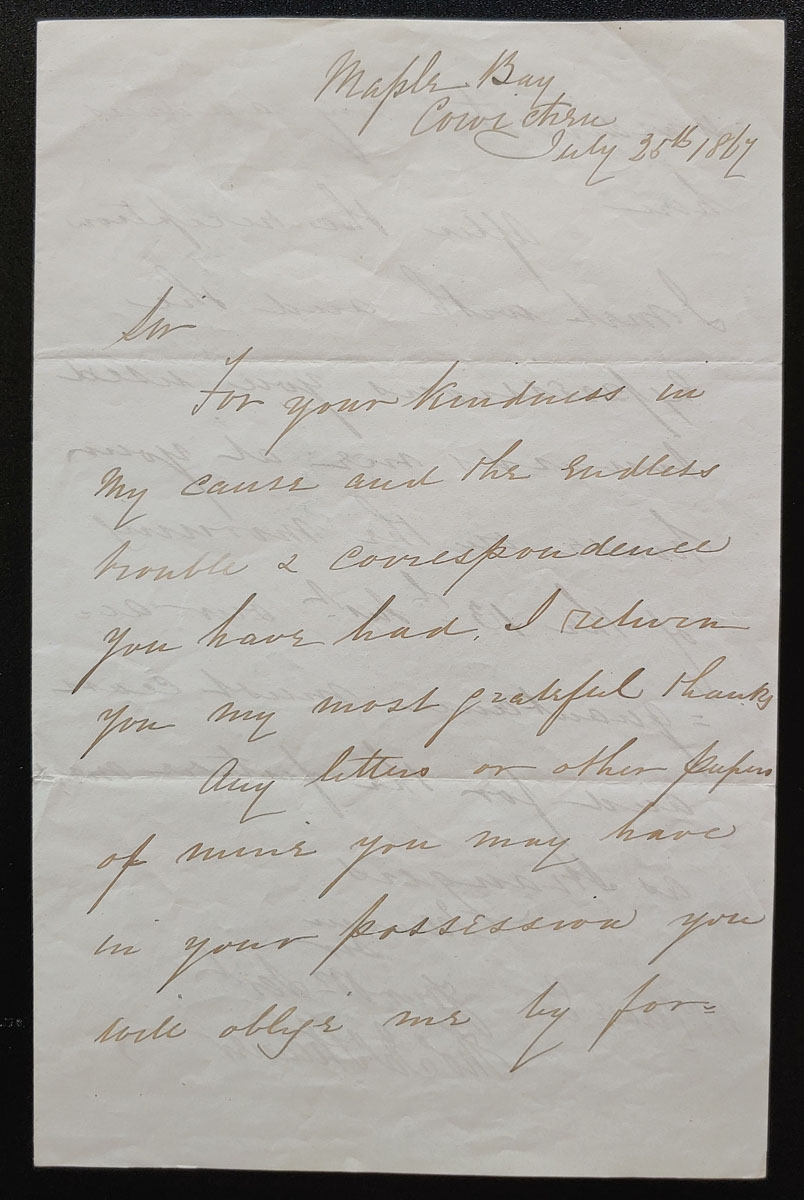 Maple Bay
Cowichen
July 25th 1867
Sir
For your kindness in
my cause and the endless
trouble & correspondence
you have had, I return
you my most grateful thanks
Any letters or other papers
of mine you may have
in your possession you
will oblige me by for=